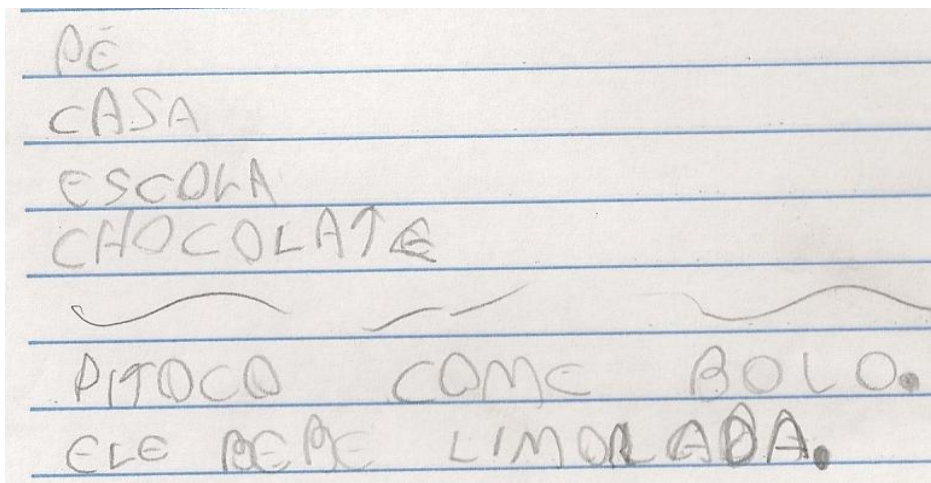 PÉ
CASA
ESCOLA
CHOCOLATE
PITOCO COME BOLO.
ELE BEBE LIMONADA.